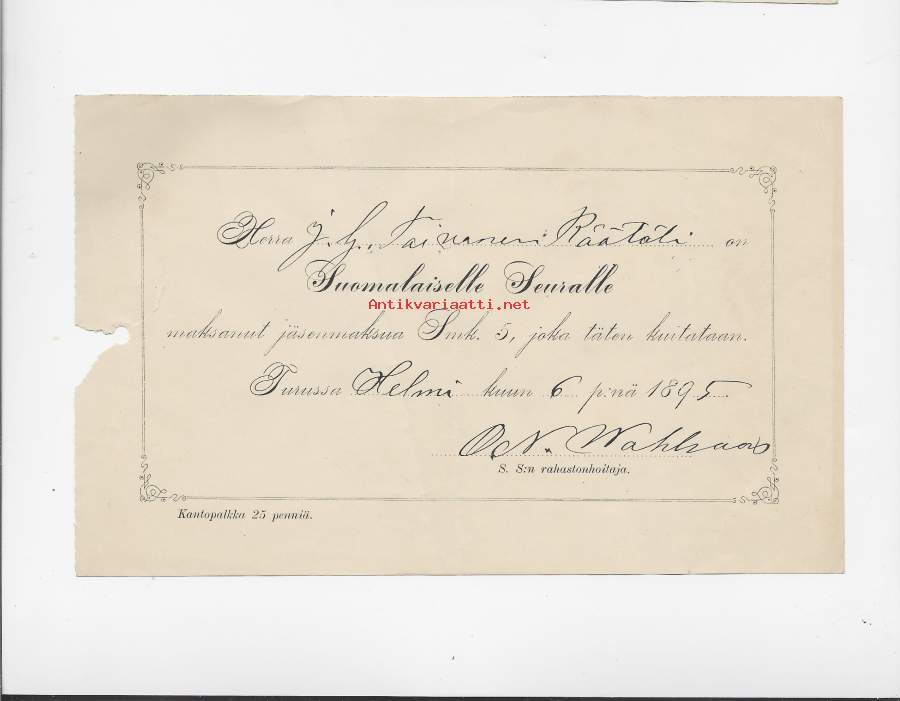 Herra J. G. Toivonen Räätäli on
Suomalaiselle Seuralle
Antikvariaatti.net
maksanut jäsenmaksua Smk. 5, joka täten kuitataan.
Turussa Helmi kuun 6 p:nä 1895
O. N.
S. S:n rahastonhoitaja.
Kantopalkka 25 penniä.